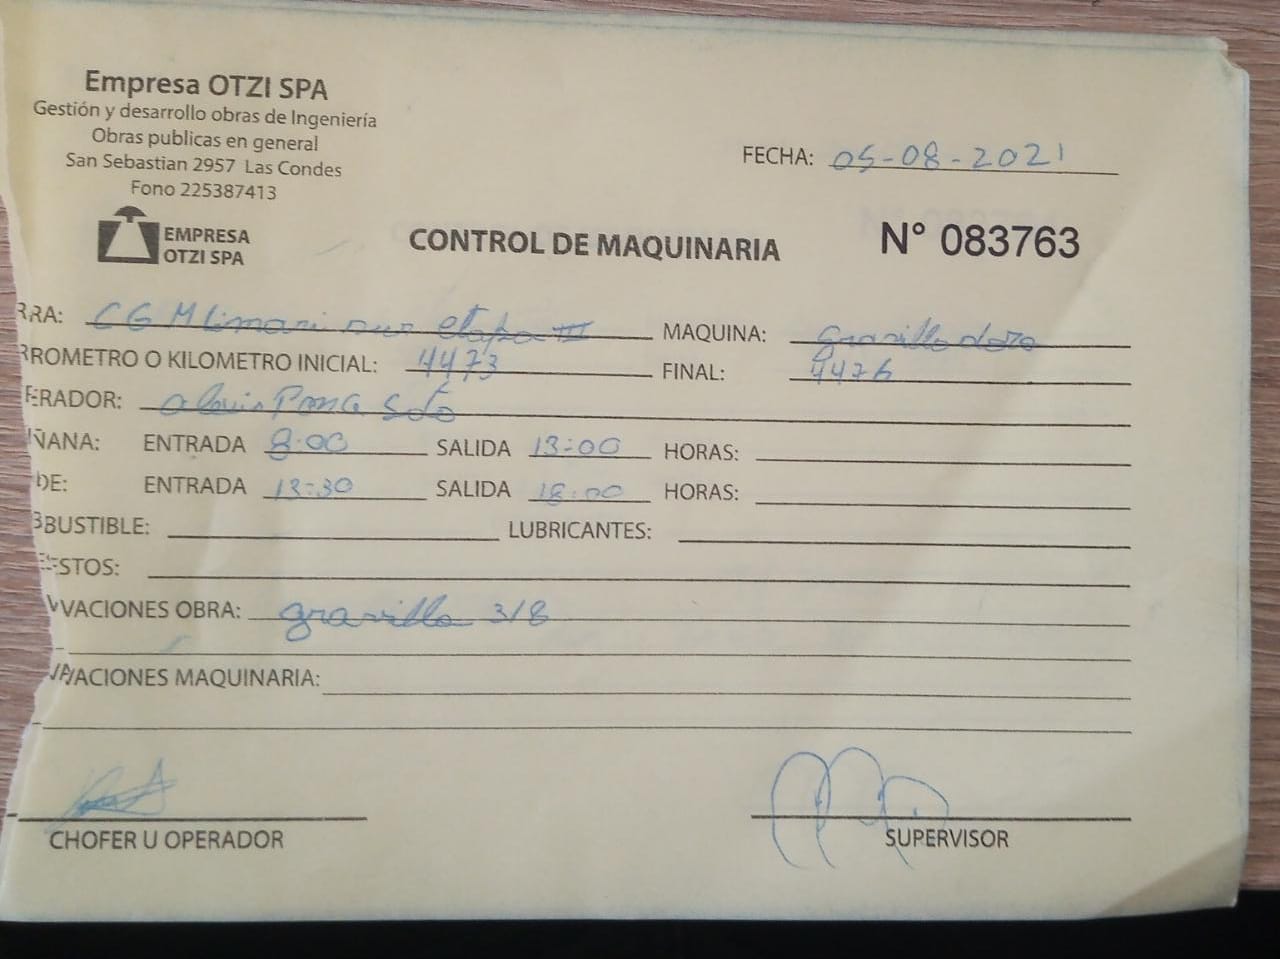 Empresa OTZI SPA
Gestión y desarrollo obras de Ingeniería
Obras publicas en general
San Sebastian 2957 Las Condes
Fono 225387413
FECHA: 05-08-2021
EMPRESA
OTZI SPA
CONTROL DE MAQUINARIA
N° 083763
RA: CGM Limari sur etapa III MAQUINA: gravilladora
ROMETRO O KILOMETRO INICIAL: 4473 FINAL: 4476
ERADOR: Ponce Soto
ÑANA: ENTRADA 8:00 SALIDA 13:00 HORAS:
DE: ENTRADA 13:30 SALIDA 18:00 HORAS:
BUSTIBLE: LUBRICANTES:
ESTOS:
VACIONES OBRA: gravilla 3/8
VACIONES MAQUINARIA:
CHOFER U OPERADOR
SUPERVISOR